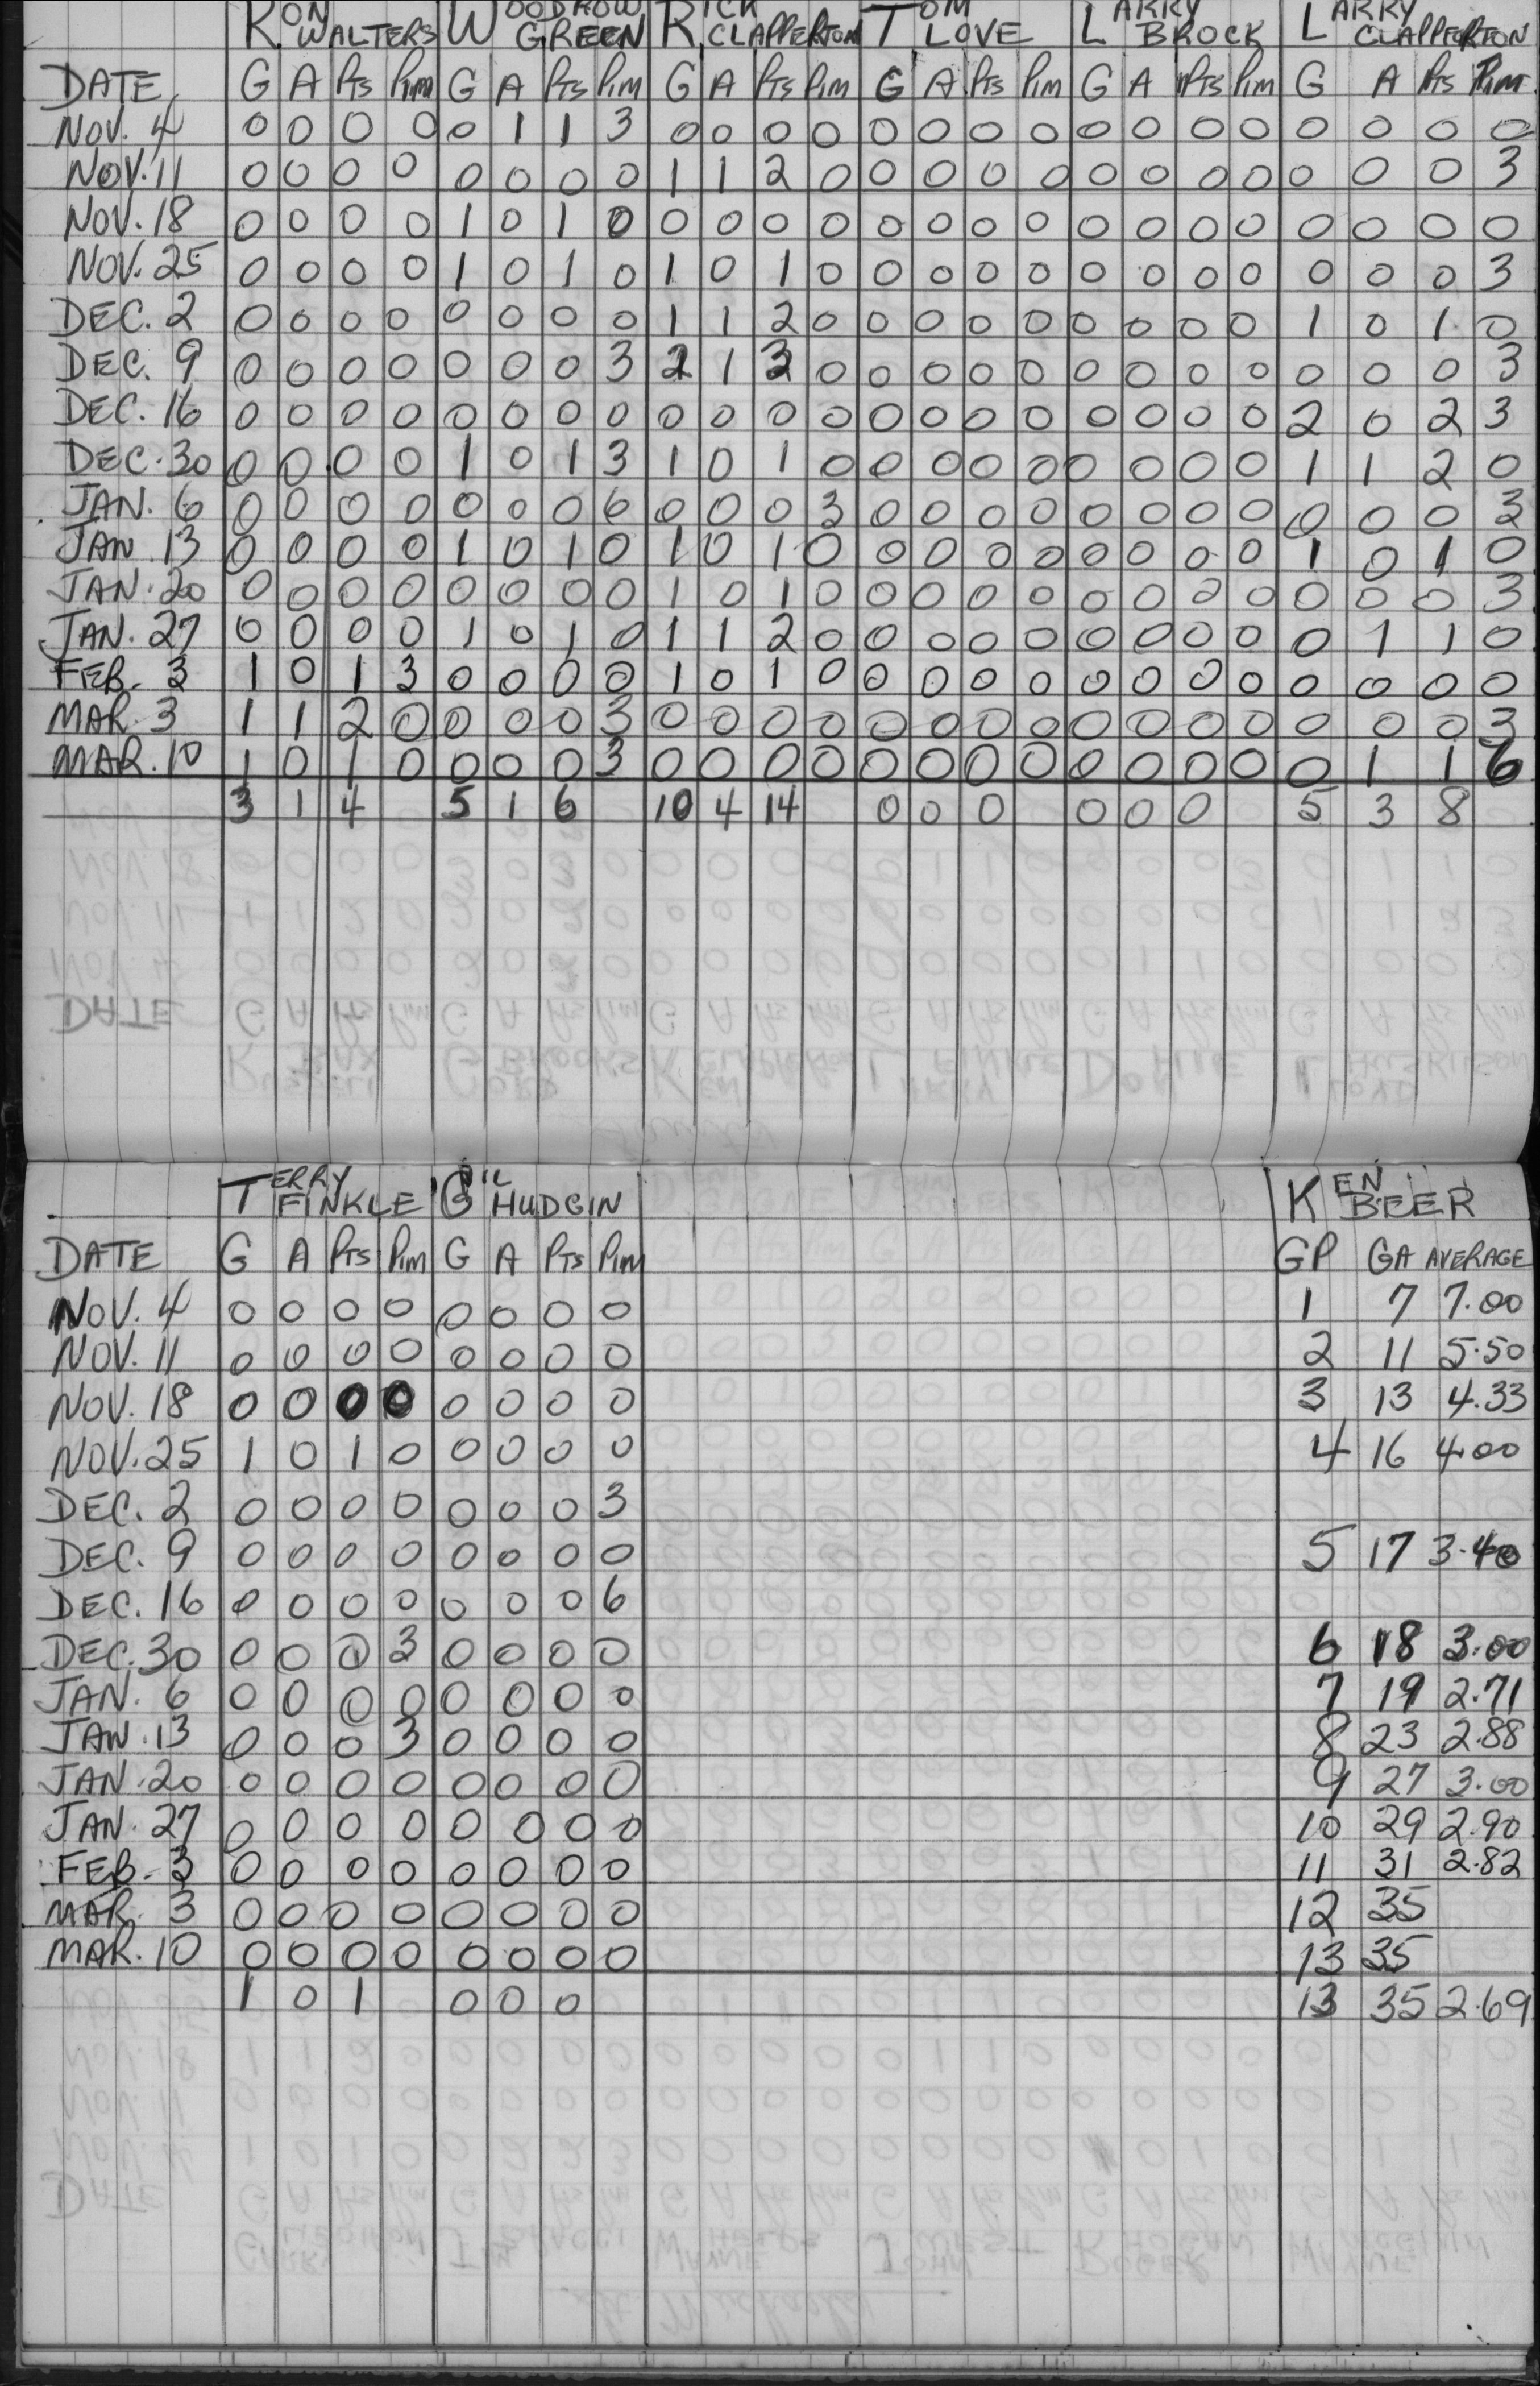 RON WALTERS WOODROW GREEN RICK CLAPPERTON TOM LOVE LARRY BROCK LARRY CLAPPERTON
DATE G A PTS PIM G A PTS PIM G A PTS PIM G A PTS PIM G A PTS PIM G A PTS PIM
NOV. 4 0 0 0 0 0 1 1 3 0 0 0 0 0 0 0 0 0 0 0 0 0 0 0 0
NOV. 11 0 0 0 0 0 0 0 0 1 1 2 0 0 0 0 0 0 0 0 0 0 0 0 3
NOV. 18 0 0 0 0 1 0 1 0 0 0 0 0 0 0 0 0 0 0 0 0 0 0 0 0
NOV. 25 0 0 0 0 1 0 1 0 1 0 1 0 0 0 0 0 0 0 0 0 0 0 0 3
DEC. 2 0 0 0 0 0 0 0 0 1 1 2 0 0 0 0 0 0 0 0 0 1 0 1 0
DEC. 9 0 0 0 0 0 0 0 3 2 1 3 0 0 0 0 0 0 0 0 0 0 0 0 3
DEC. 16 0 0 0 0 0 0 0 0 0 0 0 0 0 0 0 0 0 0 0 0 2 0 2 3
DEC. 30 0 0 0 0 1 0 1 3 1 0 1 0 0 0 0 0 0 0 0 0 1 1 2 0
JAN. 6 0 0 0 0 0 0 0 6 0 0 0 3 0 0 0 0 0 0 0 0 0 0 0 3
JAN. 13 0 0 0 0 1 0 1 0 1 0 1 0 0 0 0 0 0 0 0 0 1 0 1 0
JAN. 20 0 0 0 0 0 0 0 0 1 0 1 0 0 0 0 0 0 0 0 0 0 0 0 3
JAN. 27 0 0 0 0 1 0 1 0 1 1 2 0 0 0 0 0 0 0 0 0 0 1 1 0
FEB. 3 1 0 1 3 0 0 0 0 1 0 1 0 0 0 0 0 0 0 0 0 0 0 0 0
MAR. 3 1 1 2 0 0 0 0 3 0 0 0 0 0 0 0 0 0 0 0 0 0 0 0 3
MAR. 10 1 0 1 0 0 0 0 3 0 0 0 0 0 0 0 0 0 0 0 0 0 1 1 6
3 1 4 5 1 6 10 4 14 0 0 0 0 0 0 5 3 8
TERRY FINKLE GIL HUDGIN KEN BEER
DATE G A PTS PIM G A PTS PIM GP GA AVERAGE
NOV. 4 0 0 0 0 0 0 0 0 1 7 7.00
NOV. 11 0 0 0 0 0 0 0 0 2 11 5.50
NOV. 18 0 0 0 0 0 0 0 0 3 13 4.33
NOV. 25 1 0 1 0 0 0 0 0 4 16 4.00
DEC. 2 0 0 0 0 0 0 0 3
DEC. 9 0 0 0 0 0 0 0 0 5 17 3.40
DEC. 16 0 0 0 0 0 0 0 6
DEC. 30 0 0 0 3 0 0 0 0 6 18 3.00
JAN. 6 0 0 0 0 0 0 0 0 7 19 2.71
JAN. 13 0 0 0 3 0 0 0 0 8 23 2.88
JAN. 20 0 0 0 0 0 0 0 0 9 27 3.00
JAN. 27 0 0 0 0 0 0 0 0 10 29 2.90
FEB. 3 0 0 0 0 0 0 0 0 11 31 2.82
MAR. 3 0 0 0 0 0 0 0 0 12 35
MAR. 10 0 0 0 0 0 0 0 0 13 35
1 0 1 0 0 0 13 35 2.69